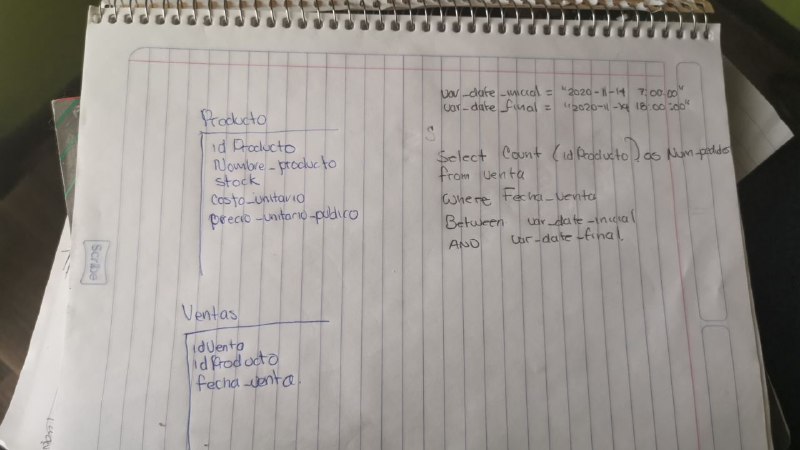 Producto
idProducto
Nombre_producto
stock
costo_unitario
precio_unitario_publico
Ventas
idVenta
idProducto
fecha_venta.
var_date_inicial = "2020-11-14 7:00:00"
var_date_final = "2020-11-14 18:00:00"
Select Count (idProducto) as Num_pedidos
from venta
Where Fecha_venta
Between var_date_inicial
AND var_date_final.
Scribe